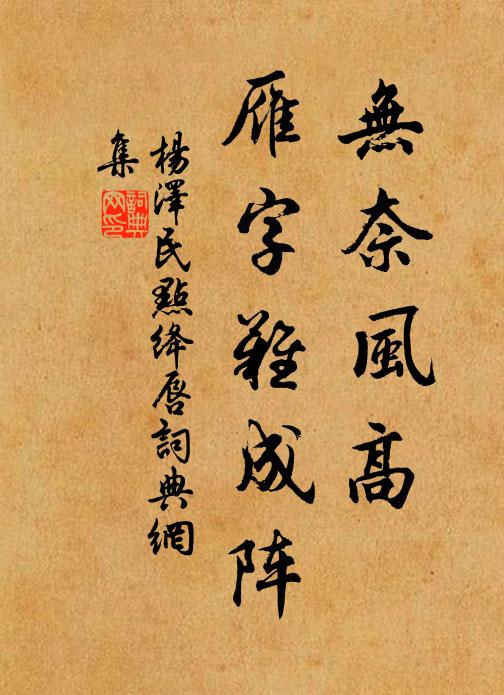 無奈風高
雁字難成阵
楊澤民點绛唇詞典網
集
詞典网印